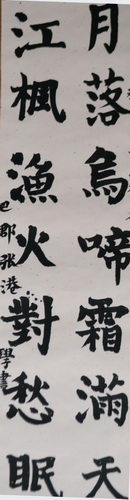 月落烏啼霜滿天
江楓漁火對愁眠
巴郡張港學書